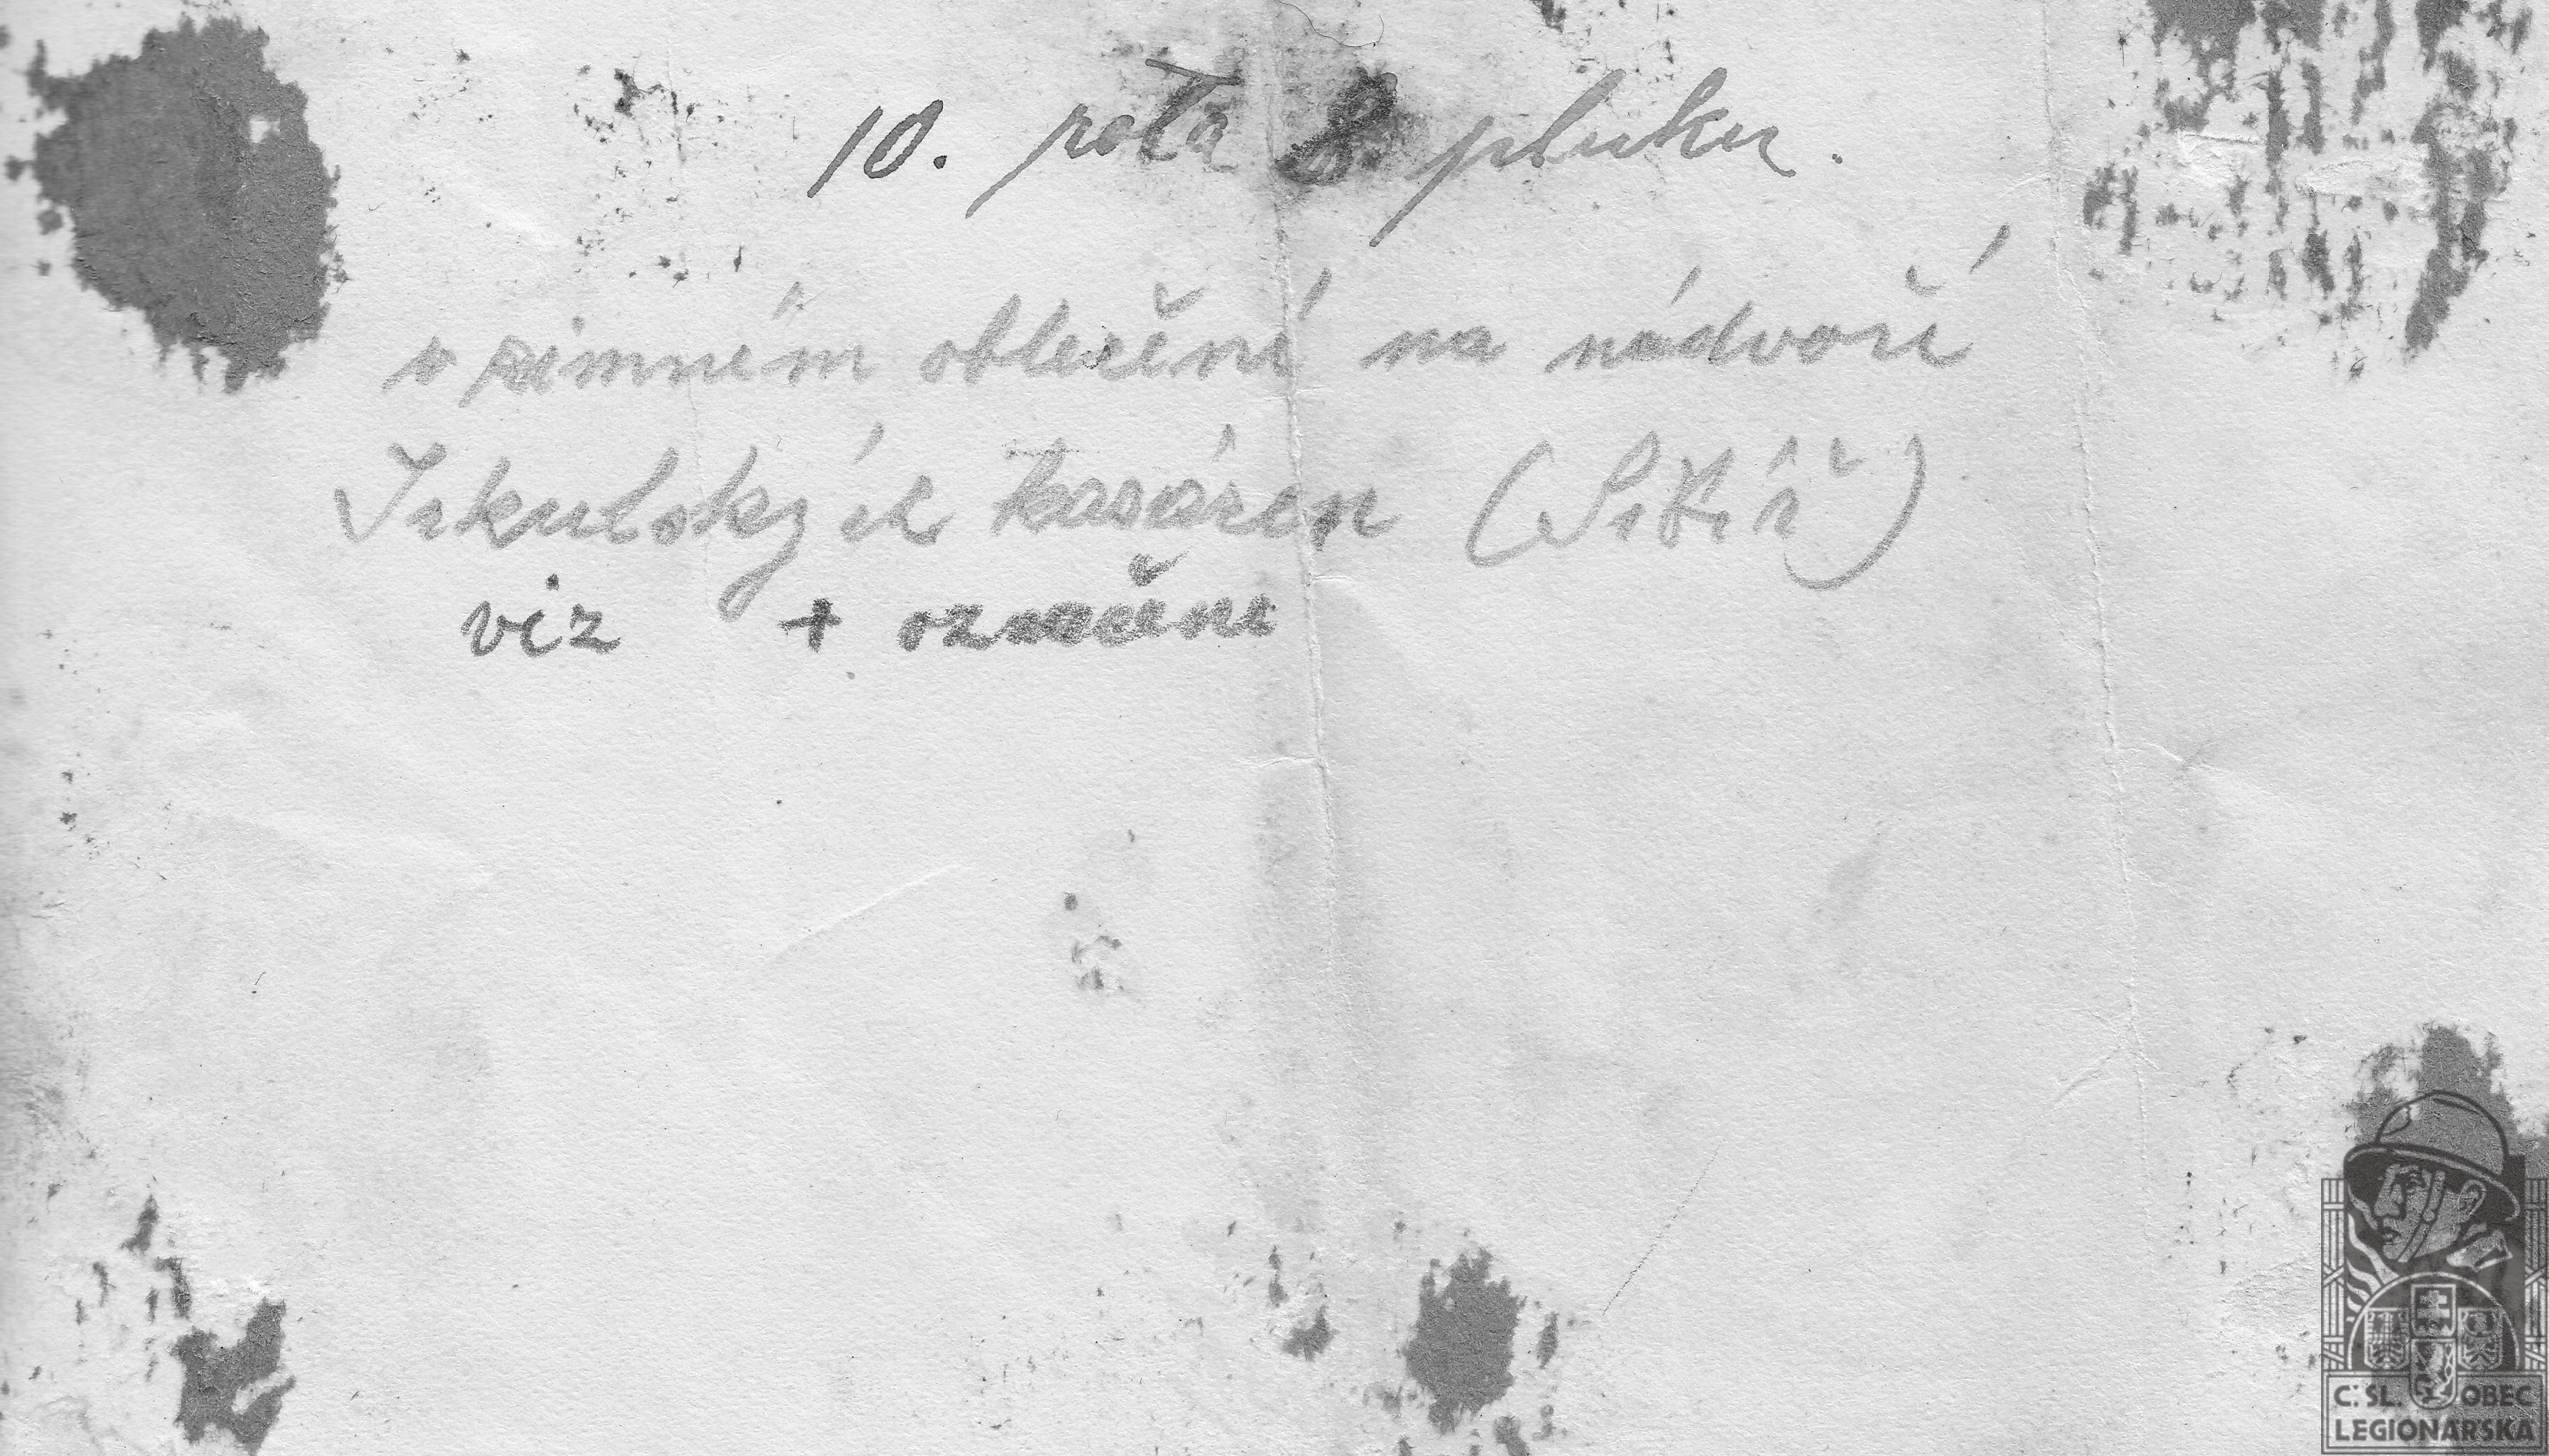 10. rota 8. pluku.
v zimném oblečení na nádvoří
Irkutských kasáren (Sibíř)
viz + označení
Č. SL. OBEC
LEGIONÁŘSKÁ